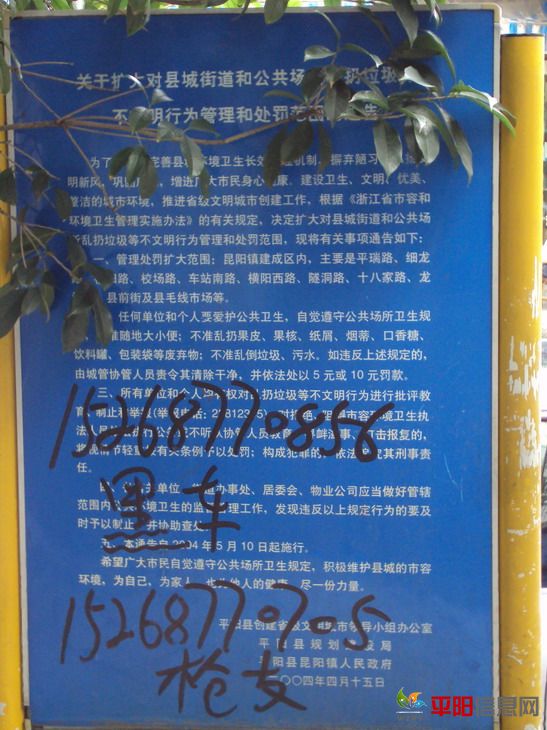 关于扩大对县城街道和公共场 扔垃圾
不 明行为管理和处罚范围 告
为了 完善县城环境卫生长效 机制，摒弃陋习，
明新风，巩固 ，增进广大市民身心 康。建设卫生、文明、优美、
整洁的城市环境，推进省级文明城市创建工作，根据《浙江省市容和
环境卫生管理实施办法》的有关规定，决定扩大对县城街道和公共场
所乱扔垃圾等不文明行为管理和处罚范围，现将有关事项通告如下：
一、管理处罚扩大范围：昆阳镇建成区内，主要是平瑞路、细龙
阳路、校场路、车站南路、横阳西路、隧洞路、十八家路、龙
县前街及县毛线市场等。
任何单位和个人要爱护公共卫生，自觉遵守公共场所卫生规
准随地大小便；不准乱扔果皮、果核、纸屑、烟蒂、口香糖、
饮料罐、包装袋等废弃物；不准乱倒垃圾、污水。如违反上述规定的，
由城管协管人员责令其清除干净，并依法处以5元或10元罚款。
三、所有单位和个人均有权对乱扔垃圾等不文明行为进行批评教
育、制止和举报(举报电话： )，对拒绝、阻 市容环境卫生执
法人员 执行公 或不听从协管人员教育、寻衅滋事、打击报复的，
将视情节轻重按有关条例予以处罚；构成犯罪的，依法追究其刑事责
任。
15268770856
四、 单位， 办事处、居委会、物业公司应当做好管辖
范围内 环境卫生的监 管理工作，发现违反以上规定行为的要及
时予以制止，并协助查处。
黑车
五、本通告自2004年5月10日起施行。
希望广大市民自觉遵守公共场所卫生规定，积极维护县城的市容
环境，为自己、为家人、也为他人的健康，尽一份力量。
15268770705
平阳县创建省级文明城市领导小组办公室
平阳县规划建设局
平阳县昆阳镇人民政府
二〇〇四年四月十五日
枪支
平阳信息网